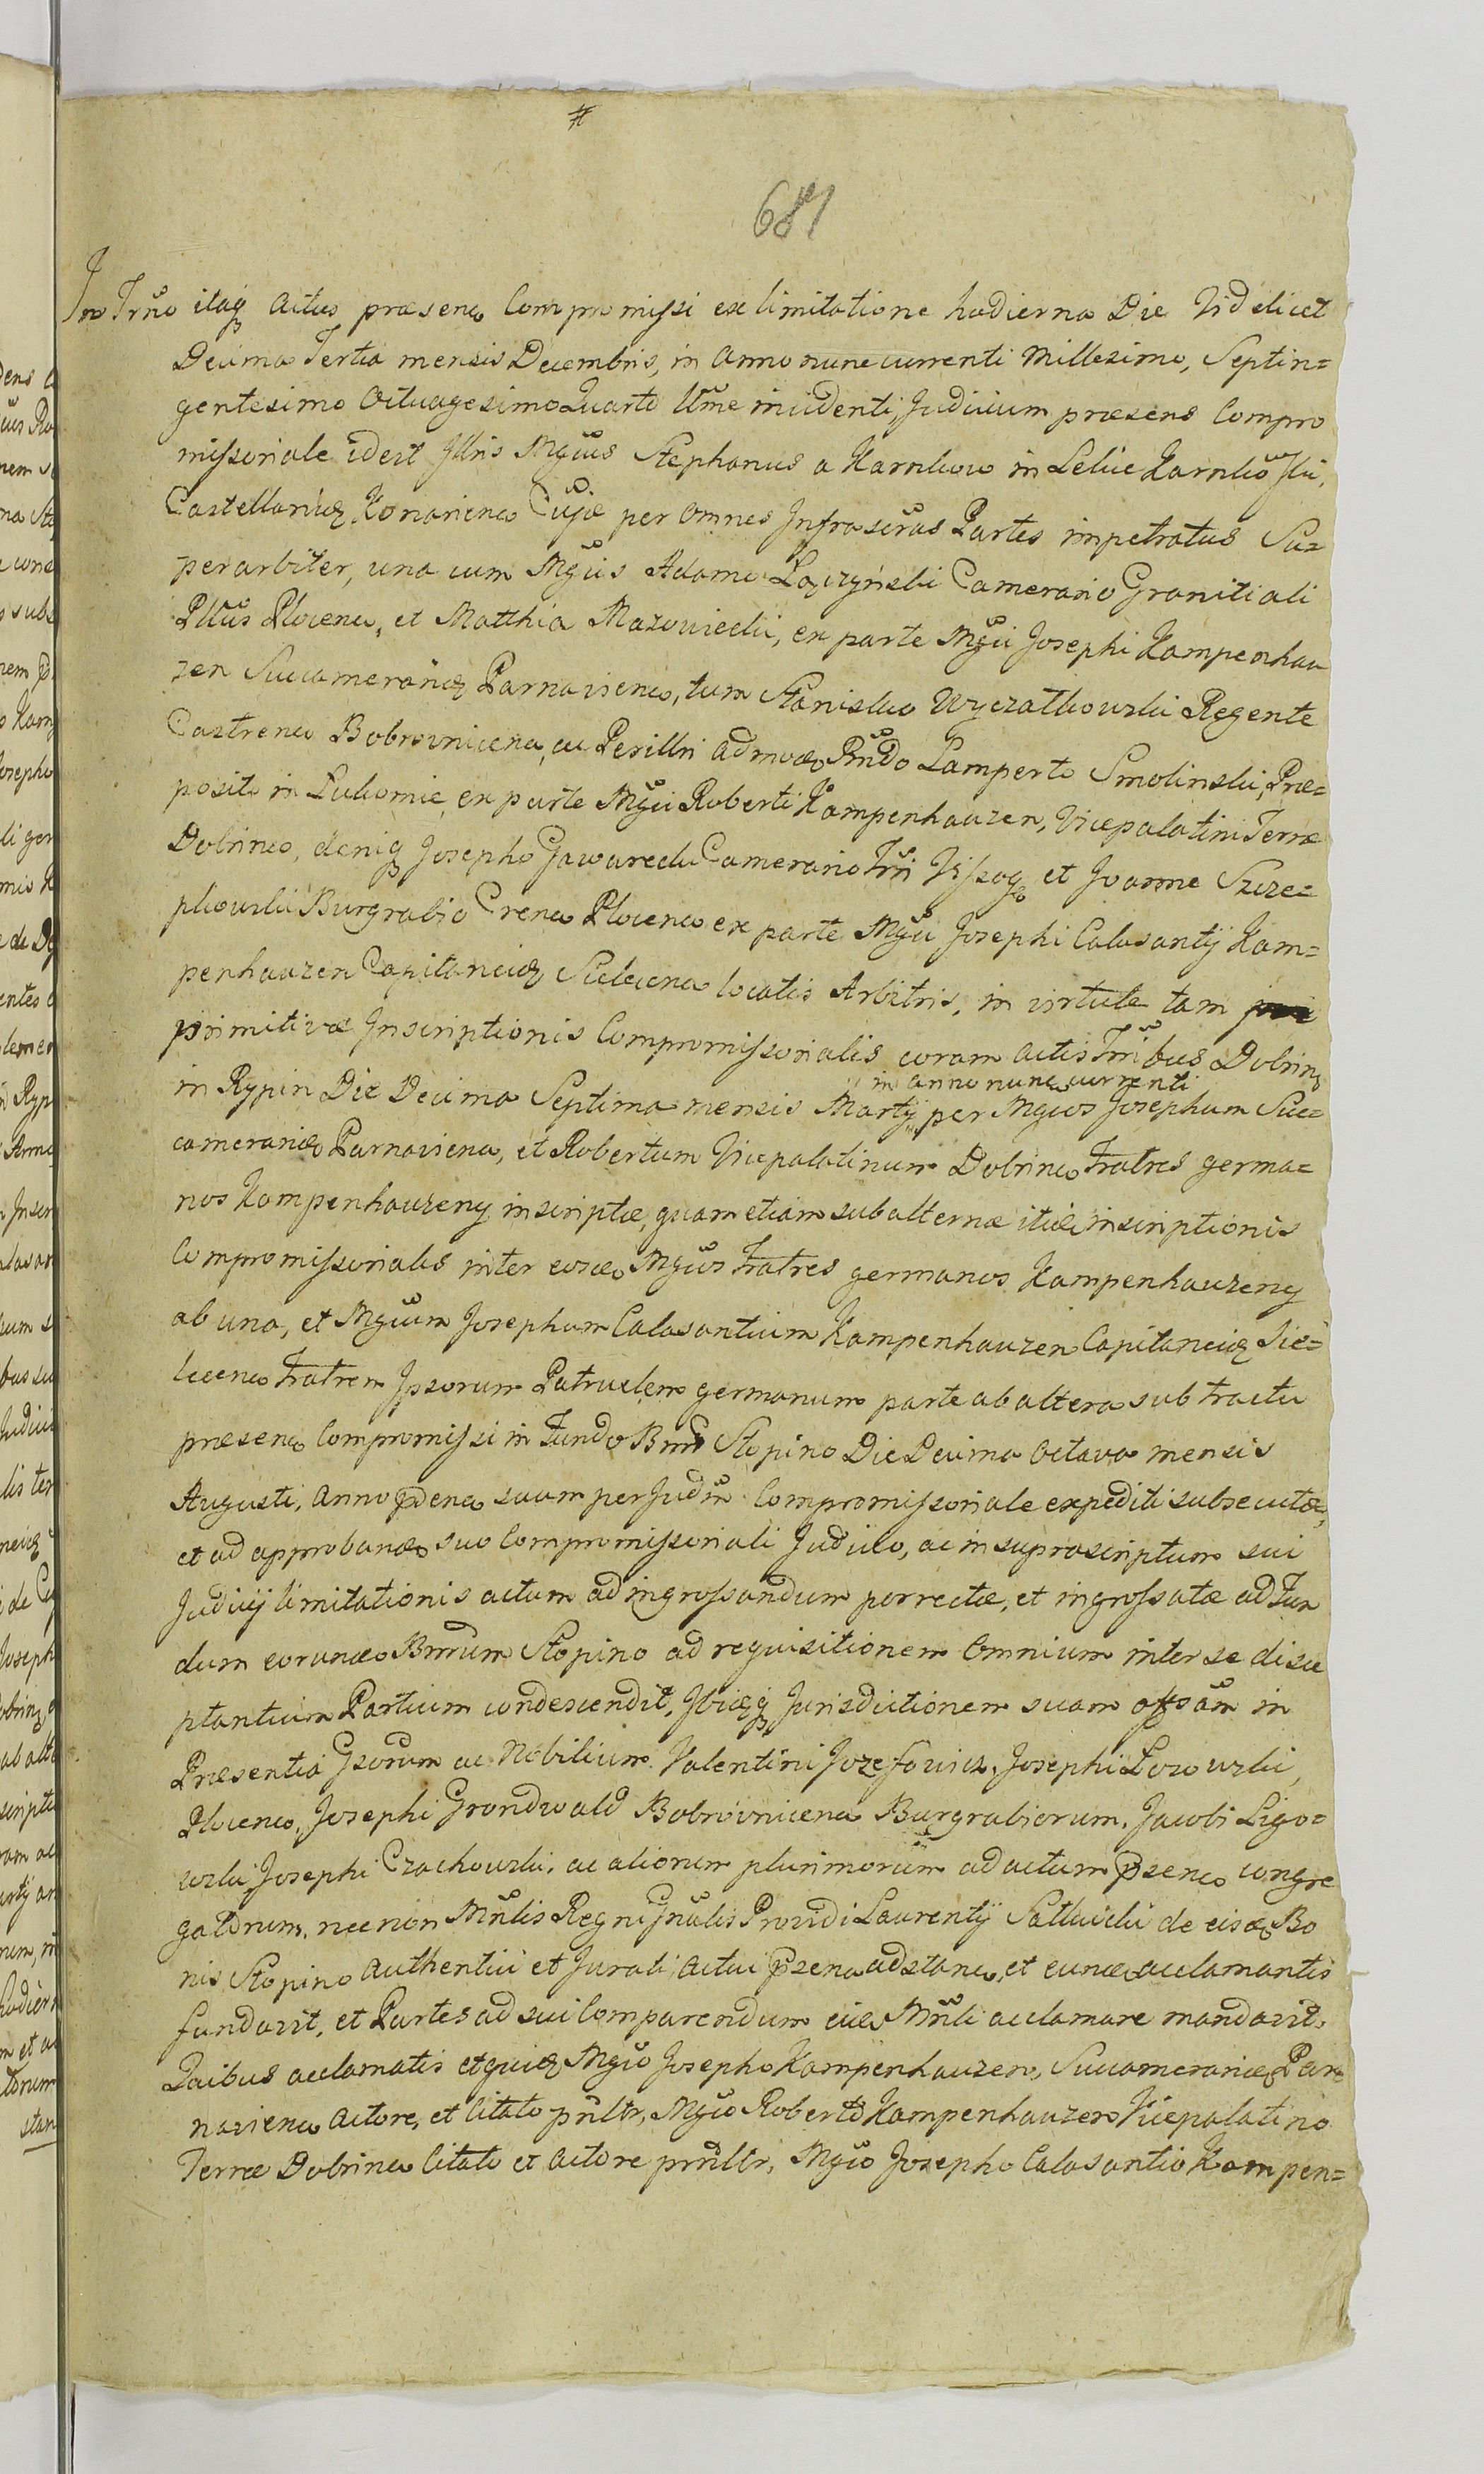 #
687
In Trno itaq actus praesens Compromissi ex limitatione hodierna Die Videlicet
Decima Tertia mensis Decembris, in anno nunc currenti Millesimo, Septin=
gentesimo Octuagesimo Quarto Ume incidenti, Judicium praesens Compro
missoriale idest Jllris Mgcus Stephanus a Karnkow in Lelice Karnkowski,
Castellanidz Konariens Cujae per omnes Infrascras Partes impetratus Su=
perarbiter, una cum Mgcis Adamo Łączyński Camerario Granitiali
Pttus Plocens, et Matthia Mazowiecki, ex parte Mgci Josephi Kampenhau
zen Succameranidz Parnaviens, tum Stanislao Wyczałkowski Regente
Castrens Bobrovnicens, ac Perillri admodo Rndo Lamperto Smolinski, Prae=
posito in Łukomie, ex parte Mgci Roberti Kampenhauzen, Vicepalatini Terrae
Dobrinens, deniq Josepho Gawarecki Camerario Trri Vissog, et Joanne Szcze=
pkowski Burgrabio Crens Plocens ex parte Mgci Josephi Calasantij Kam=
penhauzen Capitaneidz Sielecens locatis Arbitris, in virtute tam
primitivae Inscriptionis Compromissorialis coram actis Trribus Dobrin
in anno nunc currenti
in Rypin Die Decima Septima mensis Martij, per Mgcos Josephum Suc=
cameranid Parnaviens, et Robertum Vicepalatinum Dobrinens Fratres germa=
nos Kampenhauzeny inscriptae, quam etiam subalternae itid inscriptionis
Compromissorialis inter eosd Mgcos Fratres germanos Kampenhauzeny
ab una, et Mgcum Josephum Calasantium Kampenhauzen Capitaneidz Sie=
lecens Fratrem Ipsorum Patruelem germanum parte ab altera sub tractu
praesens Compromissi in Fundo Bnrm Stopino Die Decima Octava mensis
Augusti, anno pdens suum per Judm Compromissoriale expediti subsecutae,
et ad approband suo Compromissoriali Judicio, ac in suprascriptum sui
Judicij limitationis actum ad ingrossandum porrectae, et ingrossatae ad Fun
dum eorund Bnrum Stopino ad requisitionem Omnium inter se disce
ptantium Partium condescendit, Ibidq Jurisdictionem suam offsam in
Praesentia Gsorum ac Nobilium Valentini Jozefowicz, Josephi Łozowski,
Plocens, Josephi Grondwald Bobrovnicens Burgrabiorum, Jacobi Ligo=
wski, Josephi Czachowski, ac aliorum plurimorum ad actum psens congre
gatorum, necnon Mnlis Regni Gnalis Providi Laurentij Satkwicki de eisd Bo
nis Stopino authentici et Jurati, actui psens adstans, et eund acclamantis
fundavit, et Partes ad sui Comparendum eid Mnli acclamare mandavit.
Quibus acclamatis et quid Mgco Josepho Kampenhauzen, Succameranid Par=
naviens Actore, et Citato pnltr, Mgco Roberto Kampenhauzen Vicepalatino
Terrae Dobrinens Citato et Actore pnltr, Mgco Josepho Calasantio Kampen=